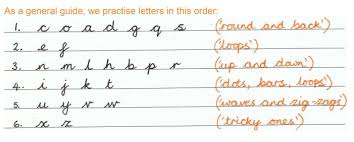 As a general guide, we practise letters in this order:
1. c o a d g q s ('round and back')
2. e f ('loops')
3. n m l h b p r ('up and down')
4. i j k t ('dots, bars, loops')
5. u y v w ('waves and zig-zags')
6. x z ('tricky ones')